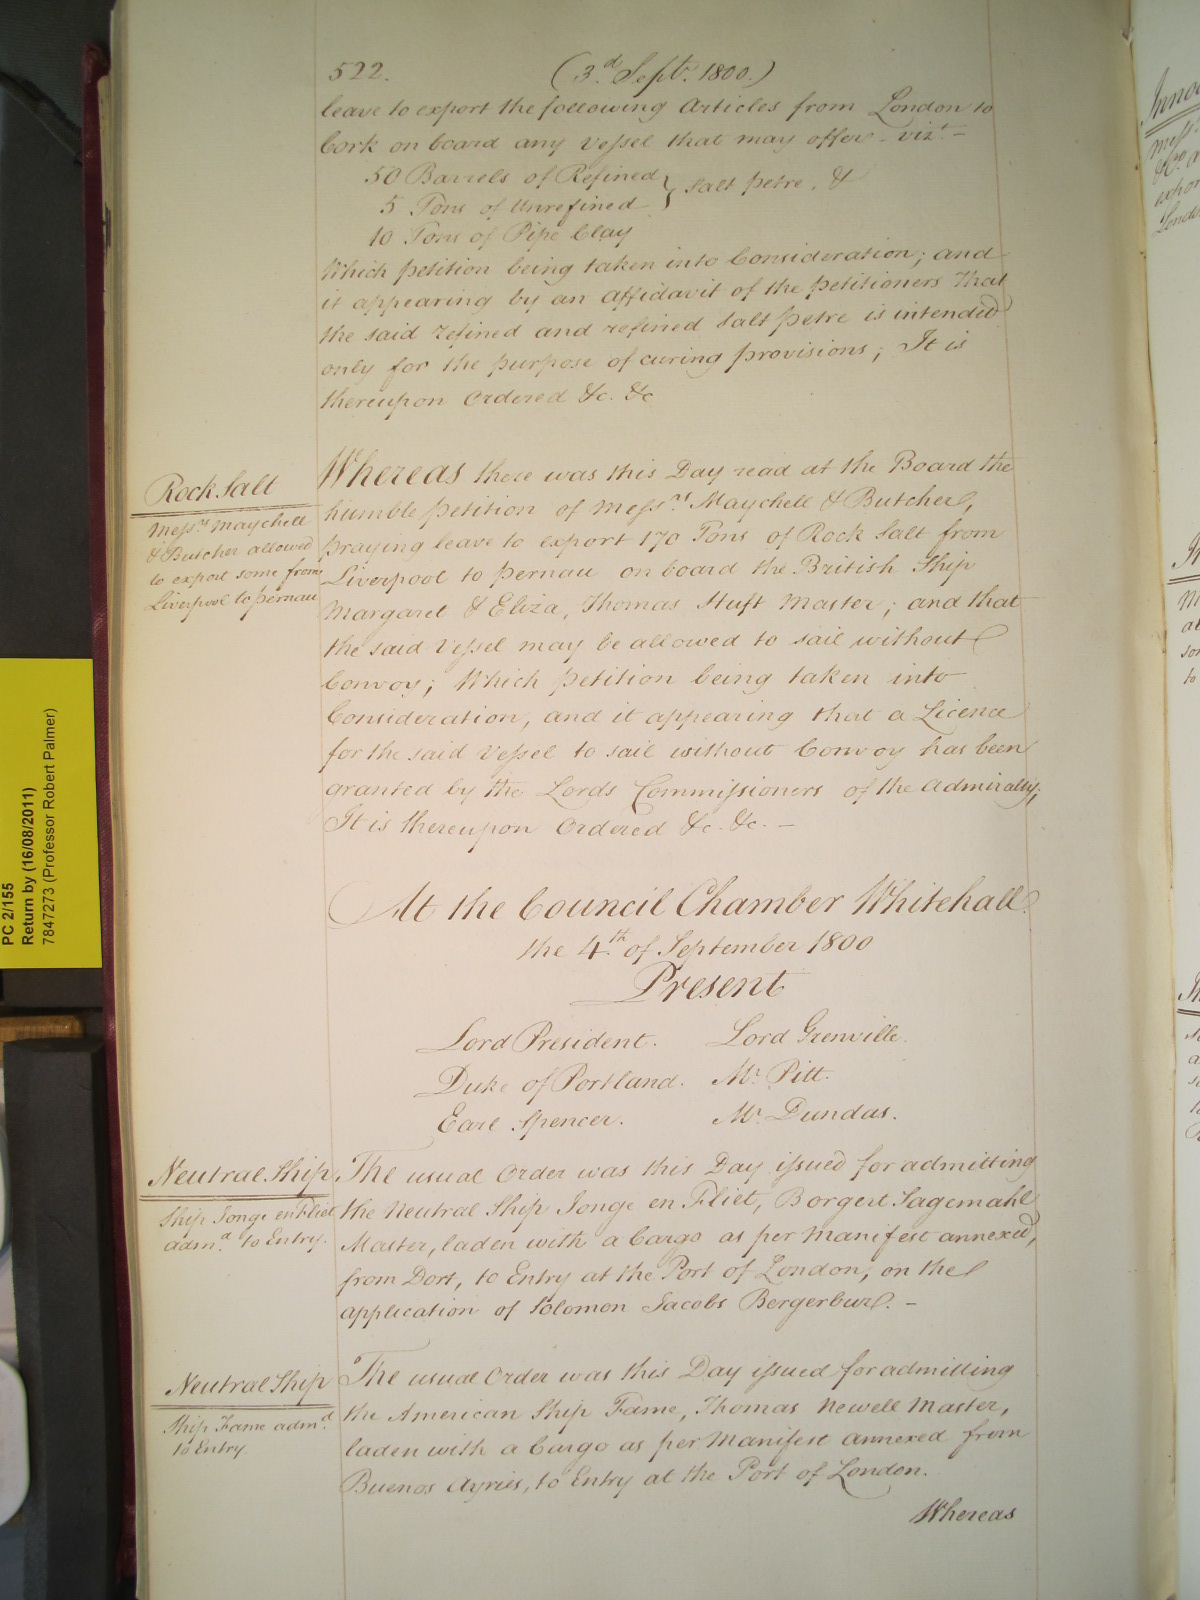 522.
(3.d Sept.r 1800.)
leave to export the following Articles from London to
Cork on board any Vessel that may offer - viz.t -
50 Barrels of Refined } Salt petre, &
5 Tons of Unrefined
10 Tons of Pipe Clay
Which petition being taken into Consideration; and
it appearing by an affidavit of the petitioners that
the said refined and refined Salt petre is intended
only for the purpose of curing provisions; It is
thereupon Ordered &c. &c
Rock Salt
Mess.rs Maychell
& Butcher allowed
to export some from
Liverpool to pernau
Whereas there was this Day read at the Board the
humble petition of Mess.rs Maychell & Butcher,
praying leave to export 170 Tons of Rock Salt from
Liverpool to pernau on board the British Ship
Margaret & Eliza, Thomas Huft Master; and that
the said Vessel may be allowed to sail without
Convoy; Which petition being taken into
Consideration, and it appearing that a Licence
for the said Vessel to sail without Convoy has been
granted by the Lords Commissioners of the Admiralty;
It is thereupon Ordered &c. &c. -
At the Council Chamber Whitehall
the 4.th of September 1800
Present
Lord President. Lord Grenville.
Duke of Portland. Mr. Pitt.
Earl Spencer. Mr. Dundas.
Neutral Ship
Ship Jonge en Fliet
adm.d to Entry.
The usual Order was this Day issued for admitting
the Neutral Ship Jonge en Fliet, Borgert Sagemahl
Master, laden with a Cargo as per Manifest annexed,
from Dort, to Entry at the Port of London, on the
application of Solomon Jacobs Bergerbur. -
Neutral Ship
Ship Fame adm.d
to Entry
The usual Order was this Day issued for admitting
the American Ship Fame, Thomas Newell Master,
laden with a Cargo as per Manifest annexed from
Buenos Ayries, to Entry at the Port of London.
Whereas
PC 2/155
Return by (16/08/2011)
7847273 (Professor Robert Palmer)